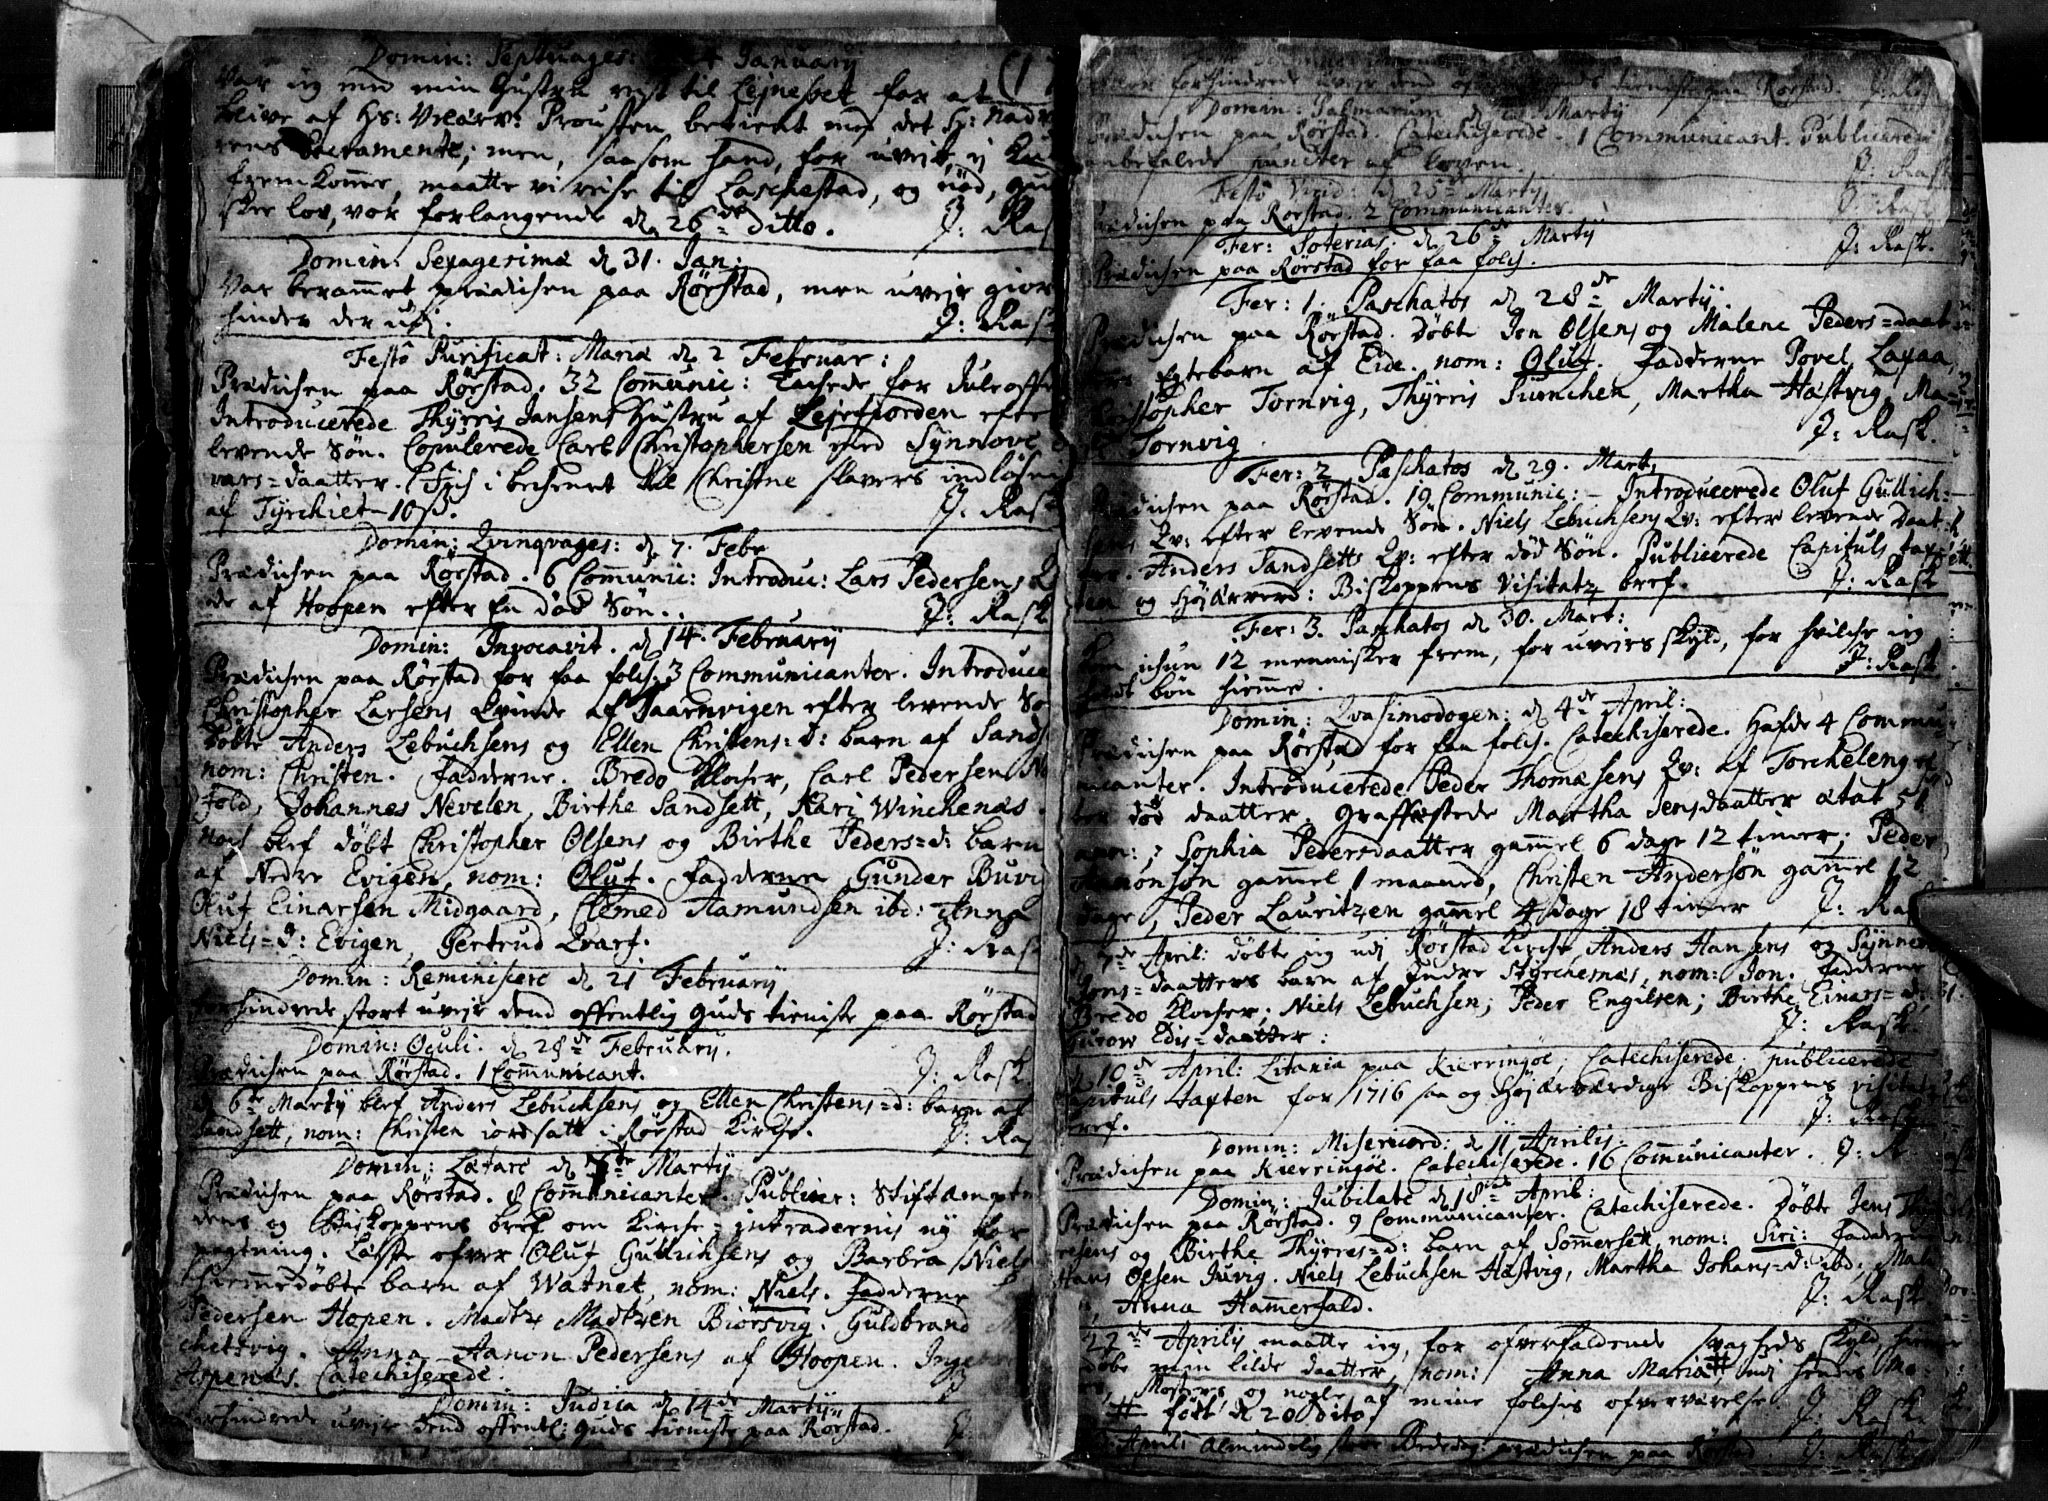 Domin: Septuages: 24 January
Var ieg med min Hustru rest til Lejnesset for at (1
blive af Hs: Velærv: Prousten betient med det H: Nadv
rens Sacramente; men, saasom hand, for uvejr, ej kun
fremkomme, maatte vi reise til Laschestad, og nød, gud
skee lov, vor forlangende d 26de ditto. J: Rask
Domin: Sexagesimæ d 31. Jan:
Var berammet prædichen paa Rørstad, men uvejr giorde
hinder der udj. J: Rask
Festo Purificat: Mariæ d 2 Februar:
Prædichen paa Rørstad. 32 Communic: Tachede for Juleoffer
Introducerede Thyrris Jansens Hustru af Lejrfiorden efter
levende Søn. Copulerede Carl Christophersen med Synnove
vars=daatter. Gich i bechenet til Christne slavers indløsning
af Tyrchiet - 10 ß. J: Rask
Domin: Qvinqvages: d 7. Febr
Prædichen paa Rørstad. 6 Communic: Introduc: Lars Pedersens Q
de af Hoopen efter En død Søn. J: Rask
Domin: Invocavit. d 14. February
Prædichen paa Rørstad for faa folch. 3 Communicanter. Introduce
Christopher Larsens Qvinde af Taarnvigen efter levende Sø
Døbte Anders Lebuchsens og Ellen Christens=d: barn af Sands
nom: Christen. Fadderne. Bredo Klocher, Carl Pedersen No
Fold, Johannes Nevelen, Birthe Sandsett, Kari Winchenæs.
Noch blef døbt Christopher Olsens og Birthe Peders=d: barn
af Nedre Evigen, nom: Oluf. Fadderne Gunder Buvi
Oluf Einarsen Midgaard, Clemed Aamundsen ibd: Anna
Niels=d: Evigen, Gertrud Qvarf. J: Rask
Domin: Reminiscere d 21 February
forhindrede stort uvejr dend offentlig Guds tieniste paa Rørstad
Domin: Oculi. d 28de February.
Prædichen paa Rørstad. 1 Communicant. J: Rask
D 6te Marty blef Anders Lebuchsens og Ellen Christens=d: barn af
Sandsett, nom: Christen jordsatt i Rørstad Kirche. J: Ras
Domin: Lætare d 7de Marty
Prædichen paa Rørstad. 8 Communicanter. Publicer: Stiftamptm
dens og Biskoppens bref om Kirche=intradernis ny for
pagtning. Læste ofver Oluf Gullichsens og Barbra Niels
hiemmedøbte barn af Watnet, nom: Niels. Fadderne
Pedersen Hopen. Madtz Madtzen Biørsvig. Guldbrand
chettvig. Anna Aanon Pedersens af Hoopen. Ingebor
Aspenæs. Catechiserede. J
Domin: Judica d 14de Marty
forhindrede uvejr dend offentl: Guds tieniste paa Rørstad. J:
forhindrede uvejr dend offentl: Guds tieniste paa Rørstad. J: Rask
Domin: Palmarum d Marty
Prædichen paa Rørstad. Catechiserede. 1 Communicant. Publicerede
anbefalede puncter af loven. J: Rask
Festo Virid: d 25de Marty
Prædichen paa Rørstad. 2 Communicanter. J: Rask
Fer: Soterias: d 26de Marty
Prædichen paa Rørstad for faa folch. J: Rask.
Fer: 1. Paschatos d 28de Marty.
Prædichen paa Rørstad. Døbte Jon Olsens og Malene Peders=daat
Egtebarn af Eide. nom: Oluf. Fadderne Povel Laxaa,
Christopher Tornvig, Thyrris Sunchen, Martha Hæstvig, Ma=
Tornvig. J: Rask.
Fer: 2 Paschatos d 29. Mart:
Prædichen paa Rørstad. 19 Communic: - Introducerede Oluf Gullich=
sens Qv: efter levende Søn. Niels Lebuchsens Qv: efter levende Daat
ter. Anders Sandsetts Qv: efter død Søn. Publicerede Capituls tax=
ten og Højærverd: Biskoppens Visitatz bref. J: Rask
Fer: 3. Paschatos d 30. Mart:
Kom ichun 12 mennisker frem, for uvejrs skyld, for hvilche ieg
holdt bøn hiemme. J: Rask
Domin: Qvasimodogen: d 4de April:
Prædichen paa Rørstad for faa folch. Catechiserede. Hafde 4 Commu=
nicanter. Introducerede Peder Thomæsens Qv: af Torchelenget ef
ter død daatter. Graffæstede Martha Jensdaatter ætat 51
ann:; Sophia Pedersdaatter gammel 6 dage 12 timer; Peder
Aanonsøn gammel 1 maaned, Christen Andersøn gammel 12
dage, Peder Lauritzen gammel 4 dage 18 timer J: Rask
D 7de April: døbte ieg udj Rørstad Kirche Anders Hansens og Synneve
Jons=daatters barn af Indre Styrchesnæs, nom: Jon. Fadderne
Bredo Klocher; Niels Lebuchsen; Peder Engilsen; Birthe Einars=d:
Gurow Edis=daatter: J: Rask.
D 10de April: Litania paa Kierringøe; Catechiserede; publicerede
Capituls taxten for 1716 saa og Højærværdige Biskoppens visitatz
bref. J: Rask
Domin: Misericord: d 11 Aprilis.
Prædichen paa Kierringøe. Catechiserede. 16 Communicanter. J: R
Domin: Jubilate d 18de April:
Prædichen paa Rørstad. 9 Communicanter. Catechiserede. Døbte Jens Thyr
resens og Birthe Thyrres=d: barn af Sommersett nom: Siri: Fadderne
Hans Olsen Juvig. Niels Lebuchsen Hæstvig, Martha Johans=d: ibd, Male
Anna Hammerfald. J: Rask
22de Aprilis maatte ieg, for ofverfaldende svagheds skyld, hiemme
døbe min lilde daatter, nom: Anna Maria# udi hendes Mo=
Mosters og nogle af mine folchis ofverværelse. J: Rask.
# født d 20 dito
April: Almindelig store Bededag: prædichen paa Rørstad. J: Rask